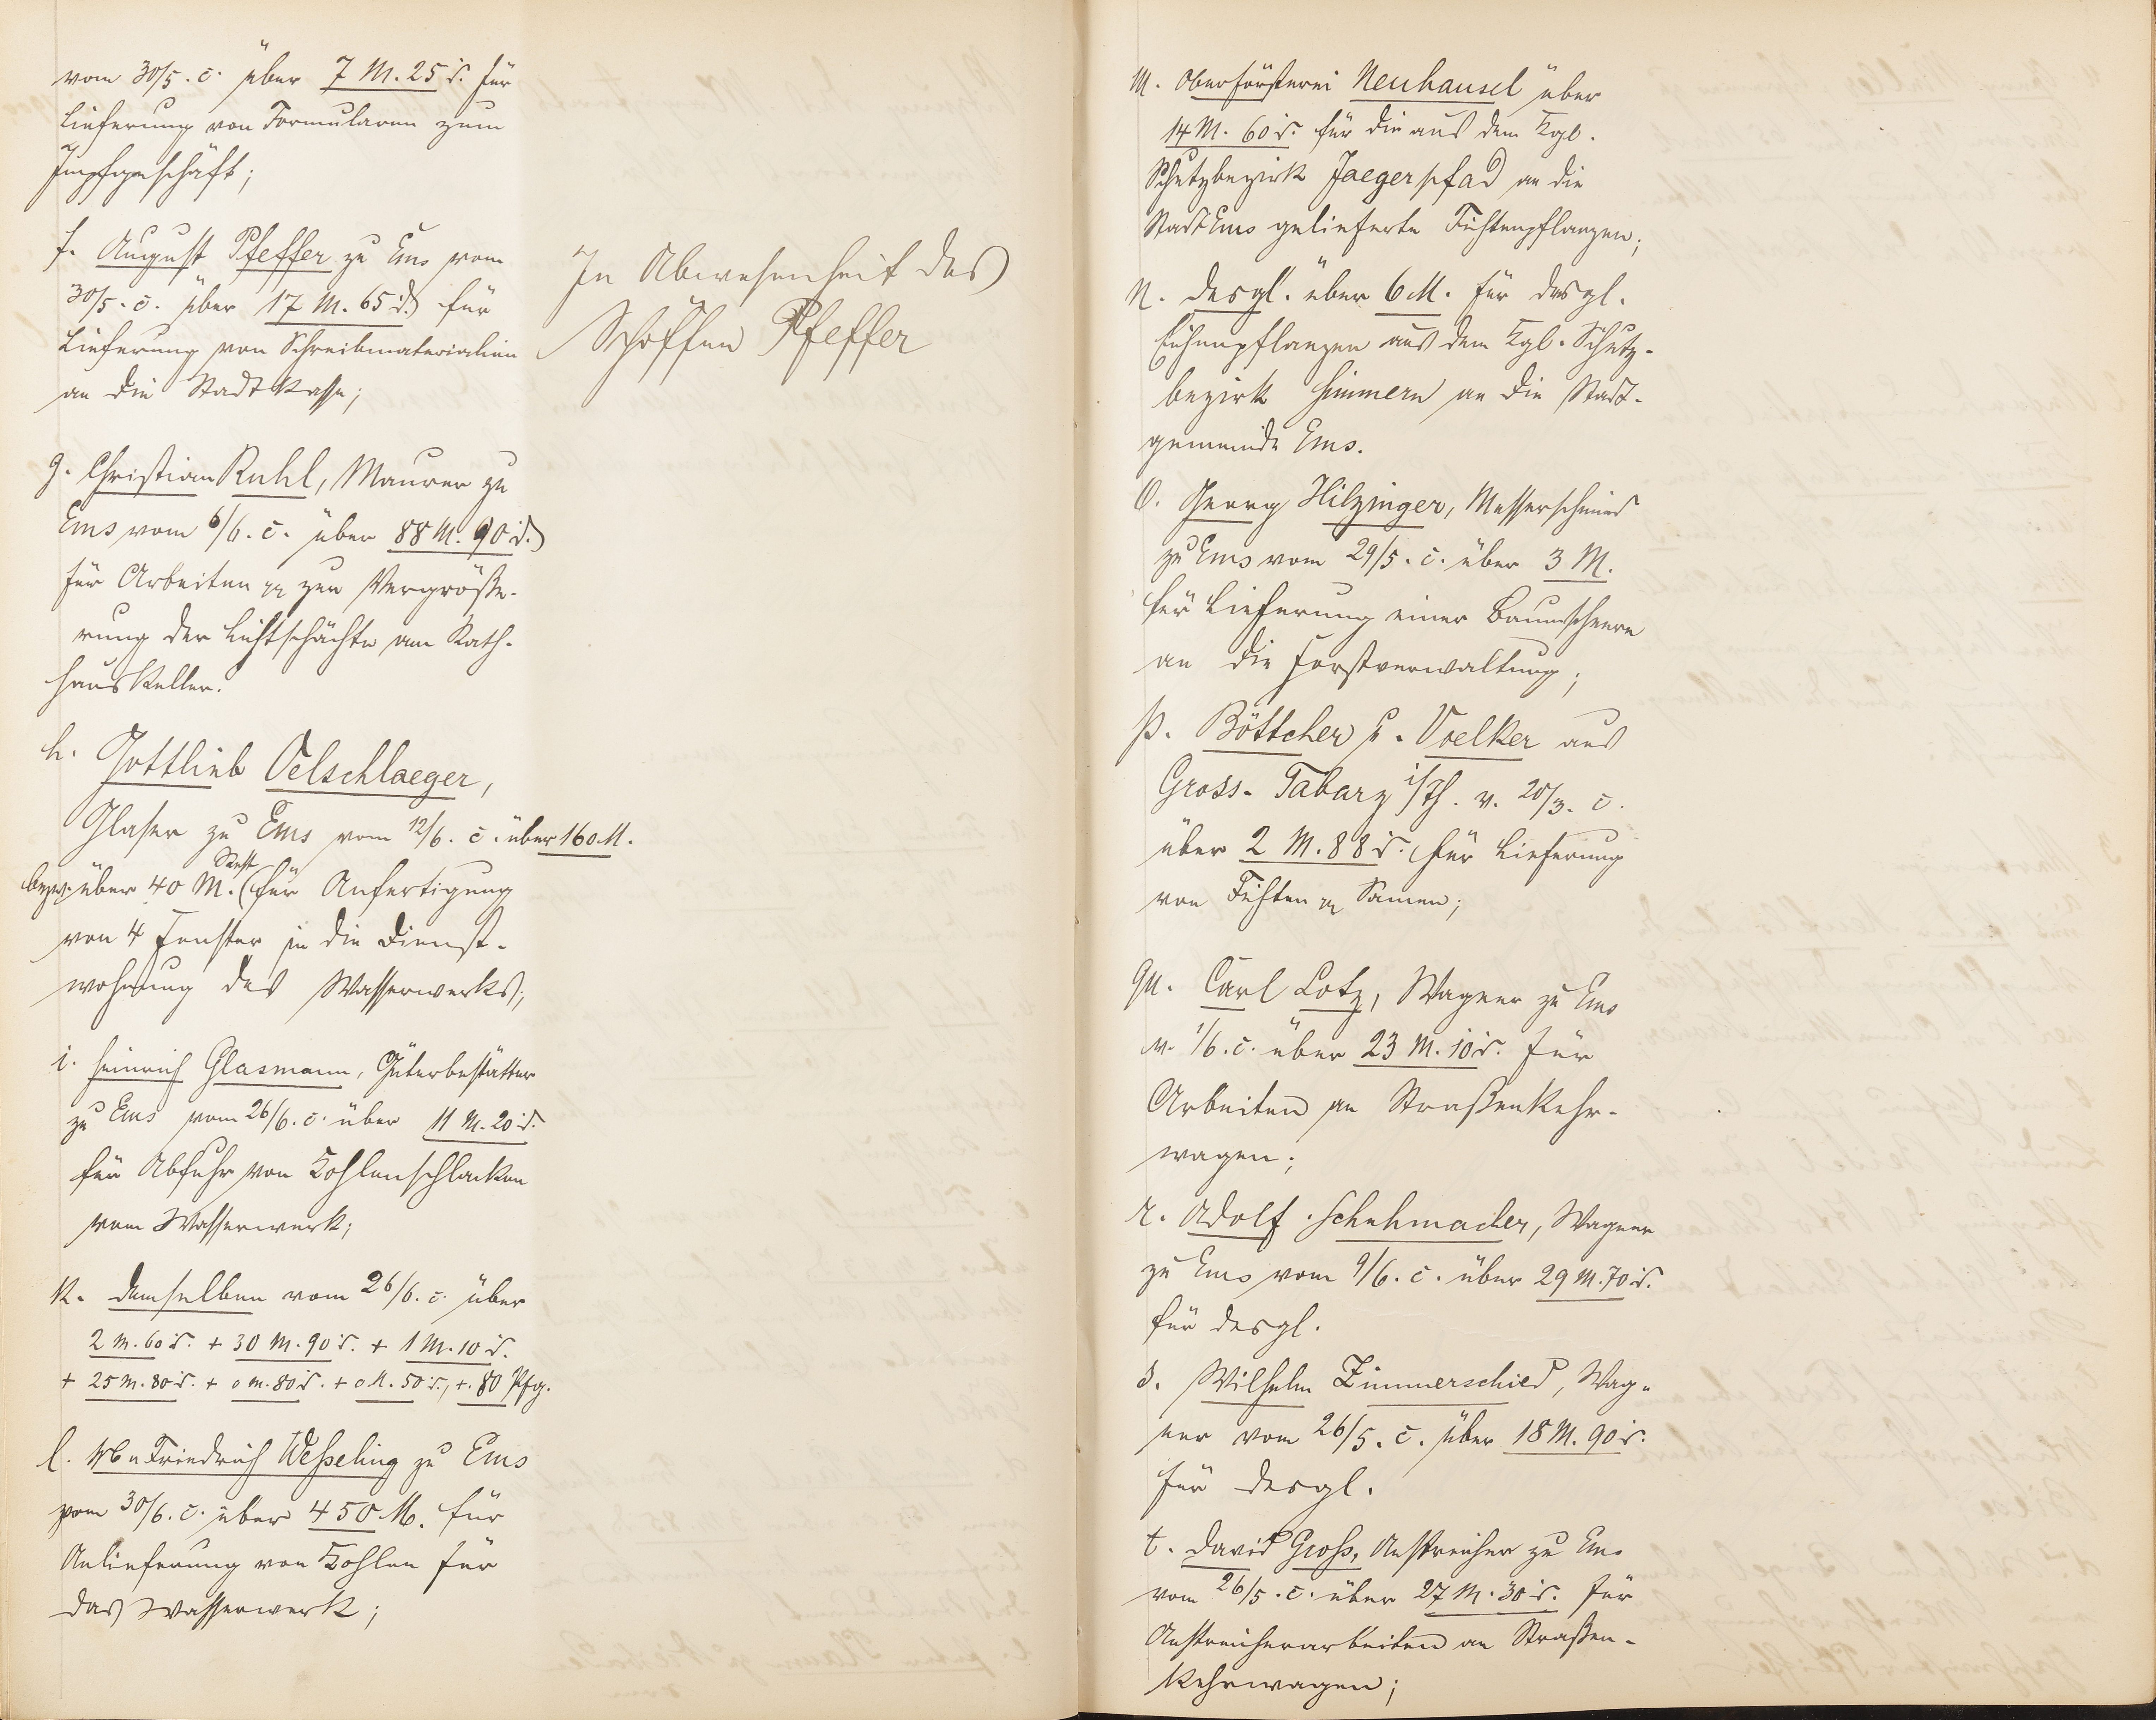 vom 30/5. c. über 7 M. 25 d. für
Lieferung von Formularen zum
Impfgeschäft;
f. August Pfeffer zu Ems vom
30/5. c. über 17 M. 65 d. für
Lieferung von Schreibmaterialien
an die Stadtkasse;
In Abwesenheit des
Schöffen Pfeffer
g. Christian Ruhl, Maurer zu
Ems vom 6/6. c. über 88 M. 90 d.
für Arbeiten pp zur Vergröße-
rung der Lichtschächte am Rath-
hauskeller.
h. Gottlieb Oelschlaeger,
Glaser zu Ems vom 12/6. c. über 160 M.
bezw. über 40 M. Rest für Anfertigung
von 4 Fenster in die Dienst-
wohnung des Wasserwerks;
i. Heinrich Glasmann, Güterbestätter
zu Ems vom 26/6. c. über 11 M. 20 d.
für Abfuhr von Kohlenschlacken
vom Wasserwerk;
k. demselben vom 26/6. c. über
2 M. 60 d. + 30 M. 90 d. + 1 M. 10 d.
+ 25 M. 80 d. + 0 M. 80 d. + 0 M. 50 d., + 80 Pfg.
l. Friedrich Weßeling zu Ems
vom 30/6. c. über 450 M. für
Anlieferung von Kohlen für
das Wasserwerk;
m. Oberförsterei Neuhausel über
14 M. 60 d. für die aus dem Kgl.
Schutzbezirk Jaegerpfad an die
Stadt Ems gelieferte Fichtenpflanzen;
n. desgl. über 6 M. für desgl.
Eichenpflanzen aus dem Kgl. Schutz-
bezirk Simmern an die Stadt-
gemeinde Ems.
o. Georg Hilzinger, Messerschmied
zu Ems vom 29/5. c. über 3 M.
für Lieferung einer Baumscheere
an die Forstverwaltung;
p. Böttcher u. Voelker aus
Gross-Tabarz i/Th. v. 20/3. c.
über 2 M. 88 d. für Lieferung
von Fichten pp Samen;
qu. Carl Lotz, Wagner zu Ems
v. 1/6. c. über 23 M. 10 d. für
Arbeiten an Straßenkehr-
wagen;
r. Adolf Schuhmacher, Wagner
zu Ems vom 9/6. c. über 29 M. 70 d.
für desgl.
s. Wilhelm Zimmerschied, Wag-
ner vom 26/5. c. über 18 M. 90 d.
für desgl.
t. David Groß, Anstreicher zu Ems
vom 26/5. c. über 27 M. 30 d. für
Anstreicherarbeiten an Straßen-
kehrwagen;